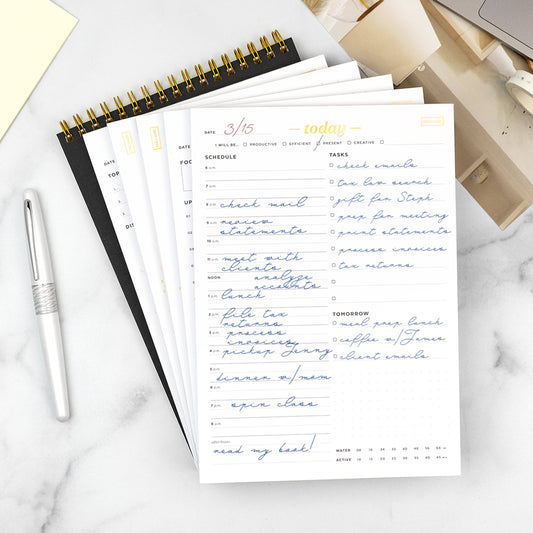 DATE 3/15 today
I WILL BE... PRODUCTIVE EFFICIENT PRESENT CREATIVE
SCHEDULE
6 A.M.
7 A.M.
8 A.M. check mail
9 A.M. review
statements
10 A.M.
11 A.M. meet with
clients
NOON analyze
accounts
1 P.M. lunch
2 P.M. file tax
returns
3 P.M. process
invoices
4 P.M. pickup Jenny
5 P.M.
6 P.M. dinner w/mom
7 P.M. spin class
8 P.M.
read my book!
TASKS
check emails
tax law search
gift for Steph
prep for meeting
print statements
process invoices
tax returns
TOMORROW
meal prep lunch
coffee w/James
client emails
WATER
ACTIVE
DATE
TOP
DIS
DATE
FOC
UP